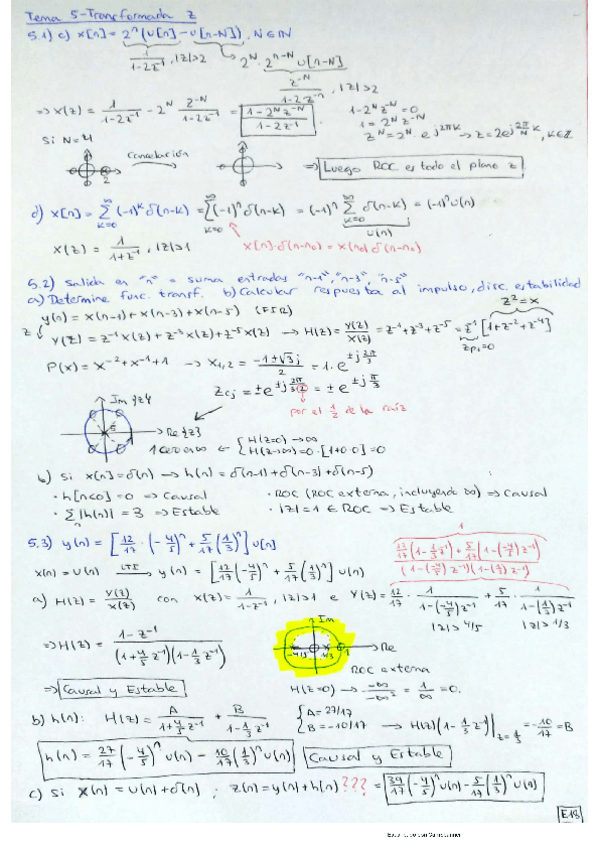 Tema 5-Transformada Z
5.1) c) x[n] = 2ⁿ(u[n]-u[n-N]), N∈ℕ
1/(1-2z⁻¹), |z|>2    2^N · 2^(n-N) u[n-N]
z^-N/(1-2z⁻¹), |z|>2
⇒ X(z) = 1/(1-2z⁻¹) - 2^N z^-N/(1-2z⁻¹) = (1-2^N z^-N)/(1-2z⁻¹).    1-2^N z^-N = 0
1 = 2^N z^-N
z^N = 2^N e^(j2πk) → z = 2e^(j(2π/N)k), k∈ℤ
Si N=4
Cancelación
2
⇒ Luego ROC es todo el plano z
d) x[n] = Σ_(k=0)^∞ (-1)^k δ(n-k) = Σ_(k=0)^∞ (-1)ⁿ δ(n-k) = (-1)ⁿ Σ_(k=0)^∞ δ(n-k) = (-1)ⁿ u(n)
u(n)
X(z) = 1/(1+z⁻¹), |z|>1    x(n)·δ(n-n₀) = x(n₀) δ(n-n₀)
5.2) Salida en "n" = suma entradas "n-1", "n-3", "n-5"
a) Determine func. transf. b) Calcular respuesta al impulso, disc. estabilidad
y(n) = x(n-1) + x(n-3) + x(n-5) (FIR)    z² = x
z Y(z) = z⁻¹X(z) + z⁻³X(z) + z⁻⁵X(z) → H(z) = Y(z)/X(z) = z⁻¹+z⁻³+z⁻⁵ = z⁻¹[1+z⁻²+z⁻⁴]
P(x) = x⁻²+x⁻¹+1 → x₁,₂ = (-1±√3j)/2 = 1·e^(±j2π/3)
z_cj = ±e^(±j2π/(3·2)) = ±e^(±jπ/3)
por el 1/2 de la raíz
Im{z}
5
Re{z}
1 cero en ∞ ← { H(z=0) → ∞
H(z→∞) = 0·[1+0+0] = 0
b) Si x[n] = δ(n) → h(n) = δ(n-1)+δ(n-3)+δ(n-5)
· h[n<0] = 0 ⇒ Causal    · ROC (ROC externa, incluyendo ∞) ⇒ Causal
· Σ|h(n)| = 3 ⇒ Estable    · |z|=1 ∈ ROC ⇒ Estable
5.3) y(n) = [12/17 · (-4/5)ⁿ + 5/17 (1/3)ⁿ] u[n]
1
(12/17(1-1/3 z⁻¹)+5/17(1-(-4/5)z⁻¹))/((1-(-4/5)z⁻¹)(1-1/3 z⁻¹))
x(n) = u(n) LTI→ y(n) = [12/17(-4/5)ⁿ + 5/17(1/3)ⁿ] u(n)
a) H(z) = Y(z)/X(z) con X(z) = 1/(1-z⁻¹), |z|>1 e Y(z) = 12/17 · 1/(1-(-4/5)z⁻¹) + 5/17 · 1/(1-(1/3)z⁻¹)
|z|>4/5    |z|>1/3
⇒ H(z) = (1-z⁻¹)/((1+4/5 z⁻¹)(1-1/3 z⁻¹))
Im
Re
-4/5    1/3    1
ROC externa
⇒ Causal y Estable    H(z=0) → -∞/-∞² = 1/∞ = 0.
b) h(n): H(z) = A/(1+4/5 z⁻¹) + B/(1-1/3 z⁻¹)    { A = 27/17
B = -10/17 → H(z)(1-1/3 z⁻¹)|_(z=1/3) = -10/17 = B
h(n) = 27/17 (-4/5)ⁿ u(n) - 10/17 (1/3)ⁿ u(n)    Causal y Estable
c) Si x(n) = u(n)+δ(n) ; z(n) = y(n)+h(n) ??? = 39/17(-4/5)ⁿ u(n) - 5/17 (1/3)ⁿ u(n)
E18